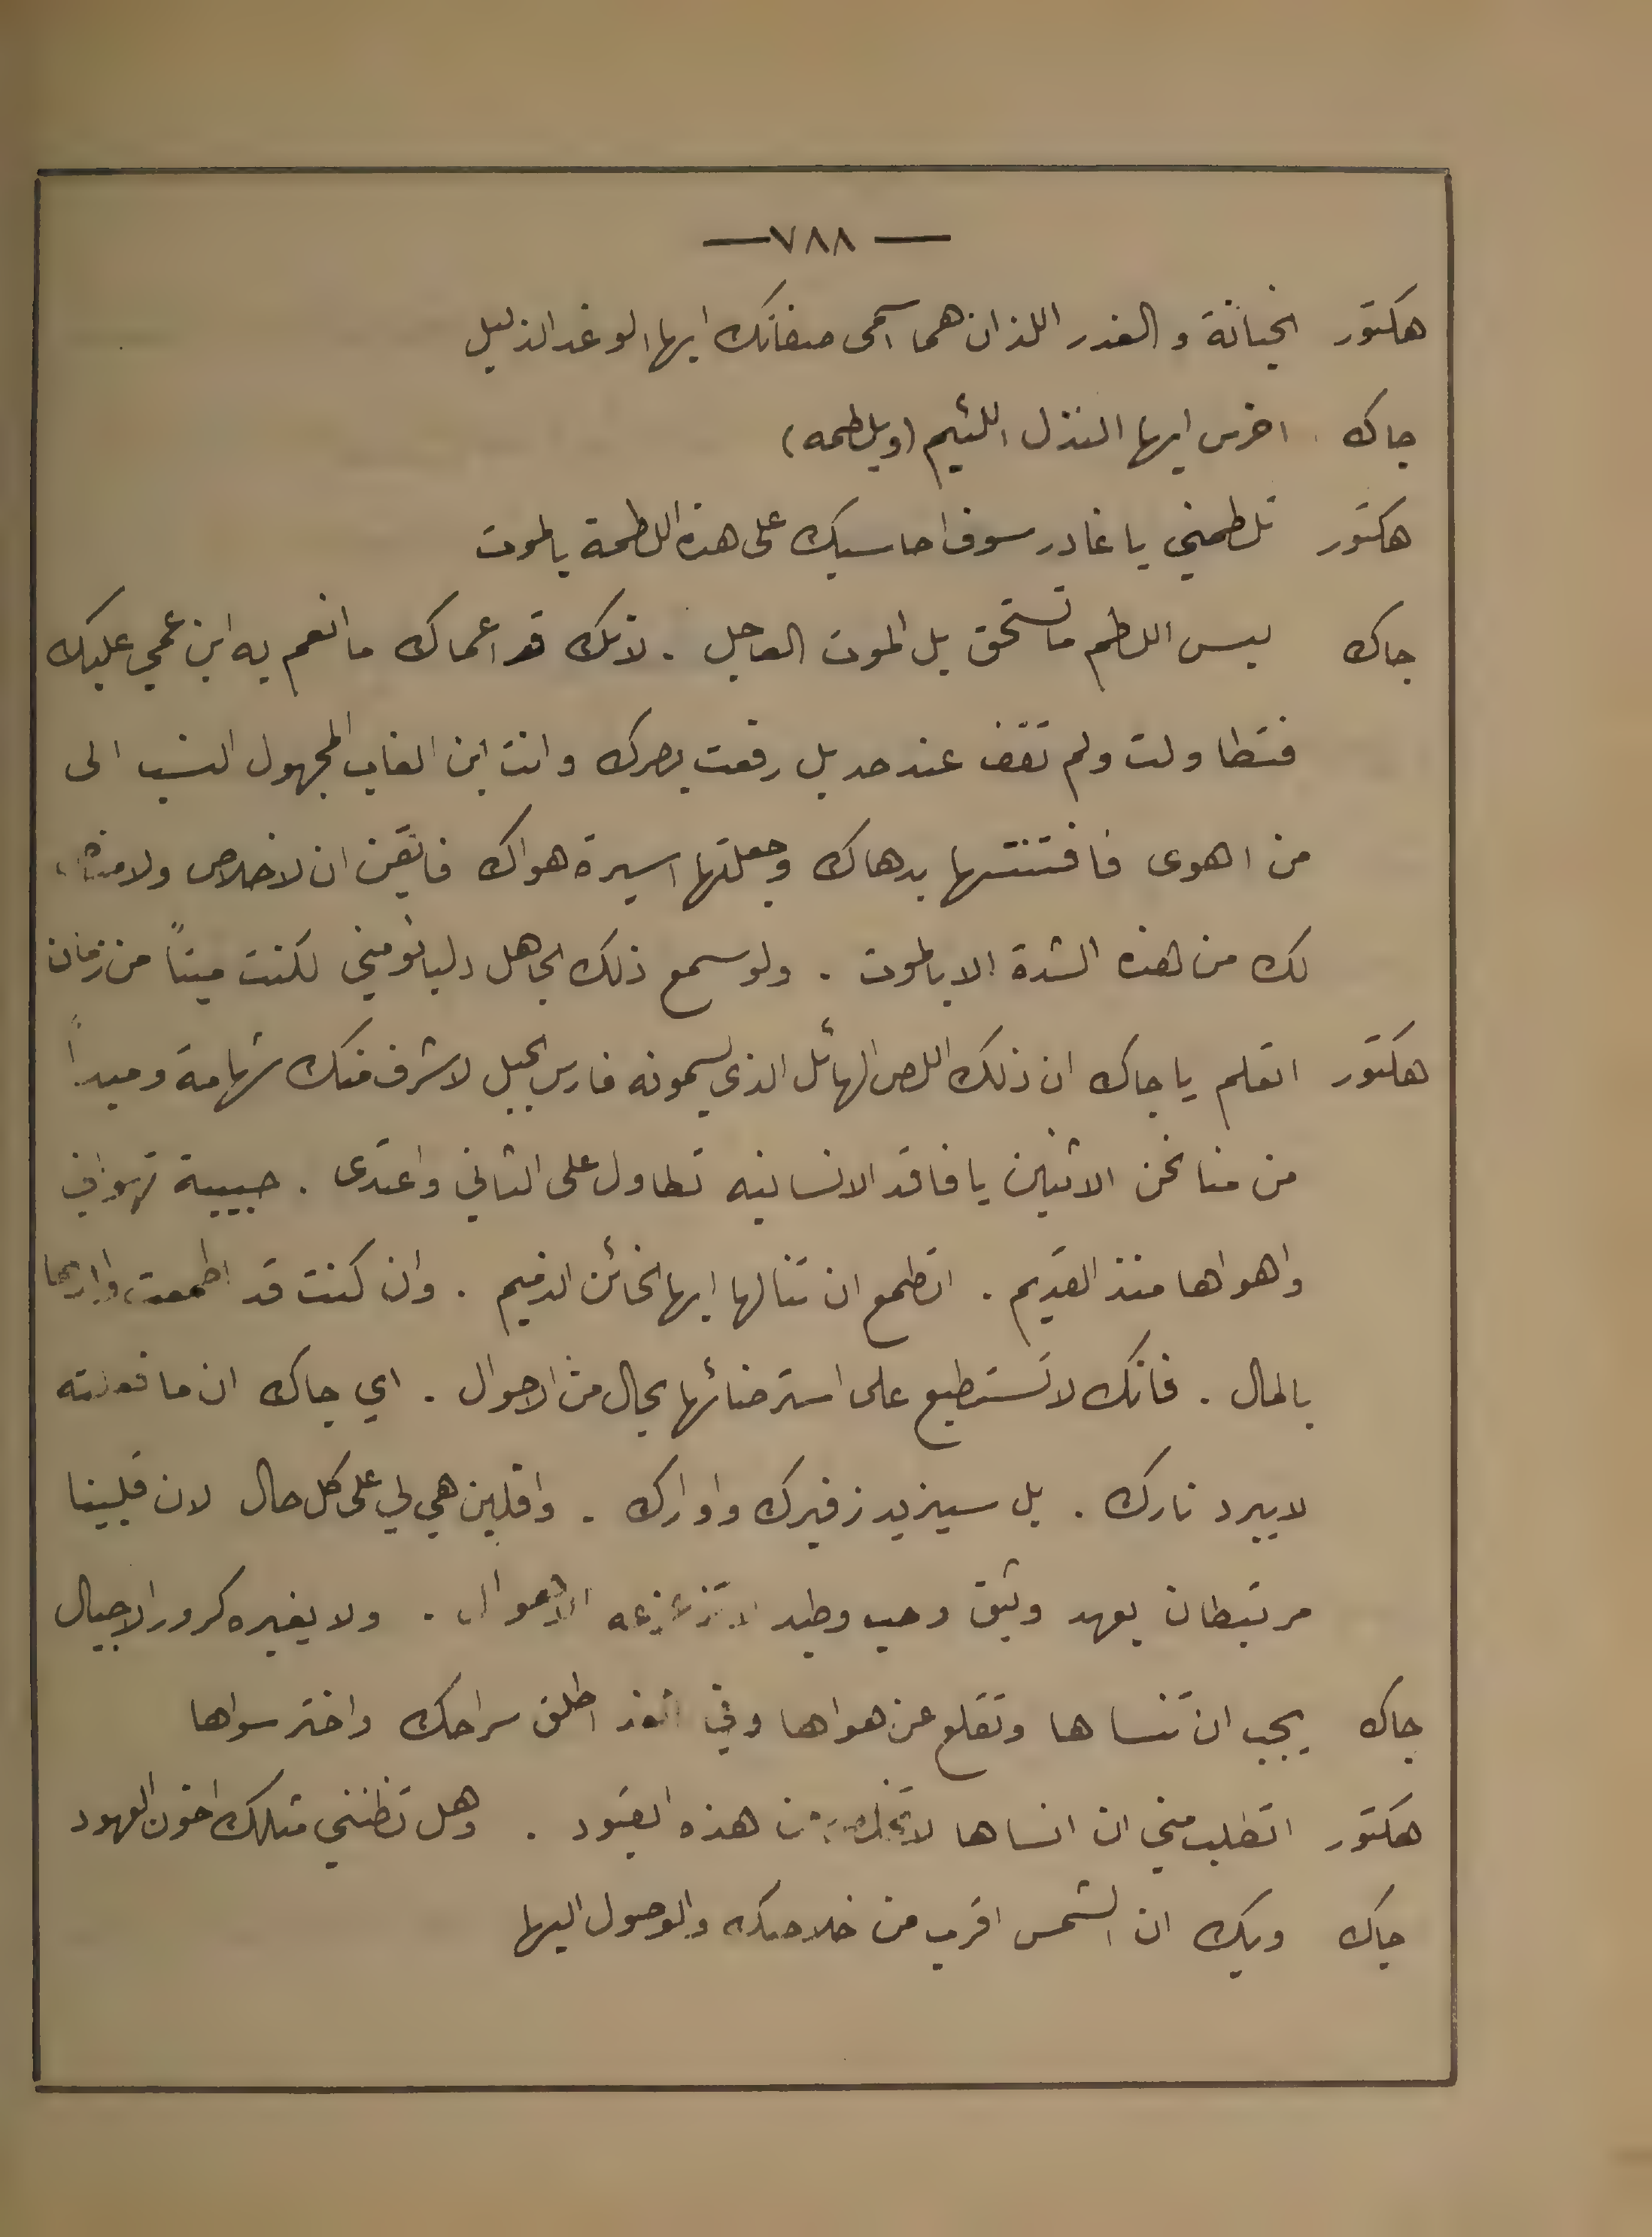 — ٧٨٨ —
هكتور الخيانة و الغدر اللذان هما آسمى صفاتك ايها الوغد الذليل
جاك اخرس ايها النذل اللئيم (ويلطمه)
هكتور تلطمني يا غادر سوف احاسبك على هذه اللطمة بالموت
جاك ليس اللطم ما تستحق بل الموت العاجل . لأنك قد اعماك ما انعم به ابن عمي عليك
فتطاولت ولم تقف عند حد بل رفعت بصرك وانت ابن الغاب المجهول النسب الى
من اهوى فافتنتها بدهاك وجعلتها اسيرة هواك فايقن ان لا خلاص ولا
لك من هذه الشدة الا بالموت . ولو سمع ذلك الجاهل دليانومني لكنت ميتاً من زمان
هكتور اتعلم يا جاك ان ذلك اللص الهائل الذي يسمونه فارس الجبل لاشرف منك شهامة ومبدأً
من منا نحن الاثنين يا فاقد الانسانيه تطاول على الثاني واعتدى . حبيبة تهواني
واهواها منذ القديم . اتطمع ان تنالها ايها الخائن الذميم . وان كنت قد اطمعت والدها
بالمال . فانك لا تستطيع على استرضائها بحال من الاحوال . اي جاك ان ما فعلته
لا يبرد نارك . بل سيزيد زفيرك واوارك . وافلين هي لي على كل حال لان قلبينا
مرتبطان بعهد وثيق وحب وطيد لا تزعزعه الاهوال . ولا يغيره كرور الاجيال
جاك يجب ان تنساها وتقلع عن هواها وفي الغد اطلق سراحك واختر سواها
هكتور اتطلب مني ان انساها هذه القيود . وهل تظنني مثلك اخون العهود
جاك ويك ان الشمس اقرب من خلاصك والوصول اليها